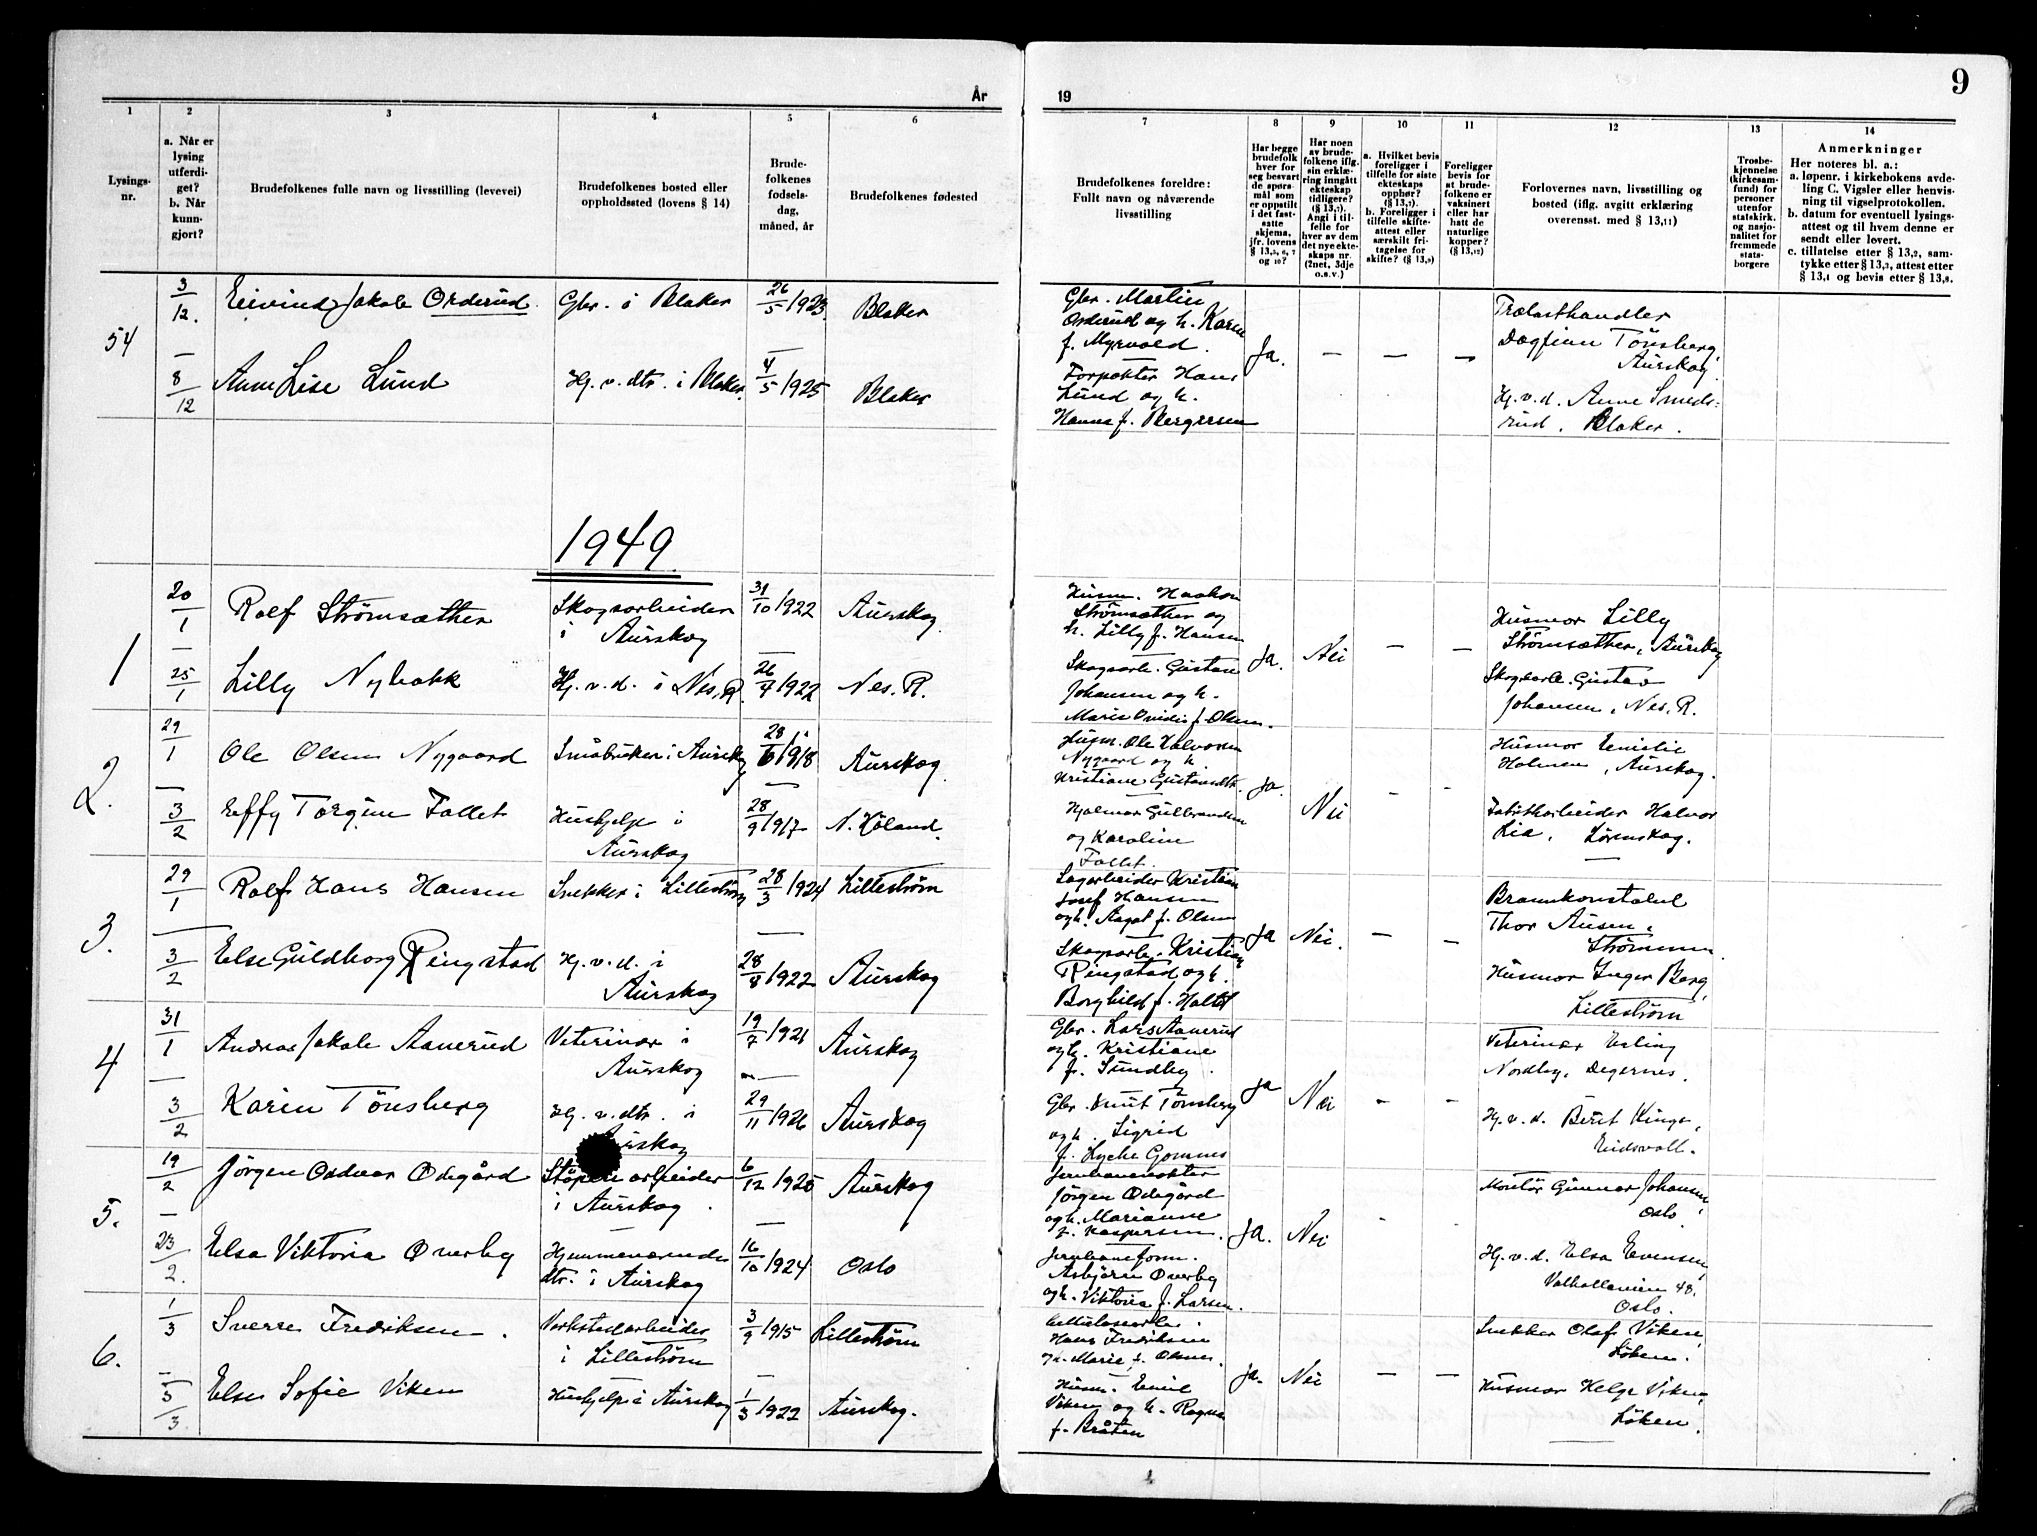 År
19
9
1
2
3
4
5
6
7
8
9
10
11
12
13
14
Lysings-
nr.
a. Når er
lysing
utferdi-
get?
b. Når
kunn-
gjort?
Brudefolkenes fulle navn og livsstilling (levevei)
Brudefolkenes bosted eller
oppholdssted (lovens § 14)
Brude-
folkenes
fødsels-
dag,
måned, år
Brudefolkenes fødested
Brudefolkenes foreldre:
Fullt navn og nåværende
livsstilling
Har begge
brudefolk
hver for
seg besvart
de spørs-
mål som
er oppstilt
i det fast-
satte
skjema,
jfr. lovens
§ 13,5, 6, 7
og 10?
Har noen
av brude-
folkene iflg.
sin erklæ-
ring inngått
ekteskap
tidligere?
(§ 13,7).
Angi i til-
felle for
hver av dem
det nye ekte-
skaps nr.
(2net, 3dje
o.s.v.)
a. Hvilket bevis
foreligger i
tilfelle for siste
ekteskaps
opphør?
(§ 13,7).
b. Foreligger i
tilfelle skifte-
attest eller
særskilt fri-
tagelse for
skifte? (§ 13,9)
Foreligger
bevis for
at brude-
folkene er
vaksinert
eller har
hatt de
naturlige
kopper?
(§ 13,12)
Forlovernes navn, livsstilling og
bosted (iflg. avgitt erklæring
overensst. med § 13,11)
Trosbe-
kjennelse
(kirkesam-
fund) for
personer
utenfor
statskirk.
og nasjo-
nalitet for
fremmede
stats-
borgere
Anmerkninger
Her noteres bl. a.:
a. løpenr. i kirkebokens avde-
ling C. Vigsler eller henvis-
ning til vigselprotokollen.
b. datum for eventuell lysings-
attest og til hvem denne er
sendt eller levert.
c. tillatelse etter § 13,2, sam-
tykke etter § 13,3, attest etter
§ 13,4 og bevis etter § 13,8.
54
3/12.
Eivind Jakob Orderud.
Gbr. i Blaker
26/5 1923
Blaker
Gbr. Martin
Orderud og h. Karen
f. Myrvold.
Ja.
—
—
—
Trælasthandler
Dagfinn Tönsberg,
Aurskog.
—
8/12
Anne Lise Lund
Hj. v. dtr. i Blaker.
4/5 1925
Blaker
Forpakter Hans
Lund og h.
Hanna f. Bergersen
Hj. v. d. Anne Smeds-
rud. Blaker.
1949.
1
20/1
Rolf Strømsæther
Skogsarbeider
i Aurskog
31/10 1922
Aurskog.
Husm. Haakon
Strømsæther og
h. Lilly f. Hansen
Ja.
Nei
—
—
Husmor Lilly
Strömsæther, Aurskog
—
25/1
Lilly Nybakk
Hj. v. d. i Nes. R.
26/7 1922
Nes. R.
Skogsarb. Gustav
Johansen og h.
Marie f. Olsen.
Skogsarb. Gustav
Johansen, Nes. R.
2.
29/1
Ole Olsen Nygaard
Småbruker i Aurskog
28/10 1918
Aurskog.
Husm. Ole Halvorsen
Nygaard og h.
Kristiane Gustavsdtr.
Ja.
Nei
-
-
Husmor Emilie
Holmen, Aurskog.
—
3/2
Effy Torgun Fallet
Hushjelp i
Aurskog
28/9 1917
N. Höland.
Hjalmar Gulbrandsen
og Karoline
Fallet.
Fabrikkarbeider Halvor
Lia, Lörenskog.
3.
29/1
Rolf Hans Hansen
Snekker i Lilleström
28/3 1924
Lilleström
Sagarbeider Kristian
Josef Hansen
og h. Aagot f. Olsen
Ja
Nei.
—
—
Brannkonstabel
Thor Ausen,
Strömmen
—
3/2
Else Guldborg Ringstad
Hj. v. d. i
Aurskog
28/8 1922
Aurskog
Skogsarb. Kristian
Ringstad og h.
Borghild f. Haltet
Husmor Inger Berg,
Lilleström
4
31/1
Andreas Jakob Aanerud
Veterinær i
Aurskog
19/7 1921
Aurskog
Gbr. Lars Aanerud
og h. Kristiane
f. Sundby.
Ja
Nei
-
-
Veterinær Erling
Nordby, Degernes.
—
3/2
Karin Tönsberg
Hj. v. dtr. i
Aurskog
29/11 1926
Aurskog
Gbr. Knut Tönsberg
og h. Sigrid
f. Lyche Gomnes
Hj. v. d. Berit Kinge,
Eidsvoll.
5.
19/2
Jörgen Oddvar Ödegård
Stöperiarbeider
i Aurskog.
6/12 1920
Aurskog
Jernbanevokter
Jörgen Ödegård
og h. Marianne
f. Kaspersen.
Ja.
Nei
Montör Gunnar Johansen,
Oslo
—
23/2.
Elsa Viktoria Överby
Hjemmeværende
dtr. i Aurskog
16/10 1924
Oslo
Jernbaneform.
Asbjörn Överby
og h. Viktoria f. Larsen.
Hj. v. d. Elsa Evensen
Valhallaveien 48,
Oslo.
6.
1/3
Sverre Fredriksen.
Verkstedarbeider
i Lilleström
3/9 1915
Lilleström
Cellulosearb.
Hans Fredriksen
og h. Marie f. Olsen.
Ja.
Nei
—
—
Snekker Olaf Viken,
Löken.
—
5/3
Else Sofie Viken
Hushjelp i Aurskog
1/3 1922
Aurskog.
Husm. Emil
Viken og h. Ragna
f. Bråten
Husmor Helga Viken,
Löken.